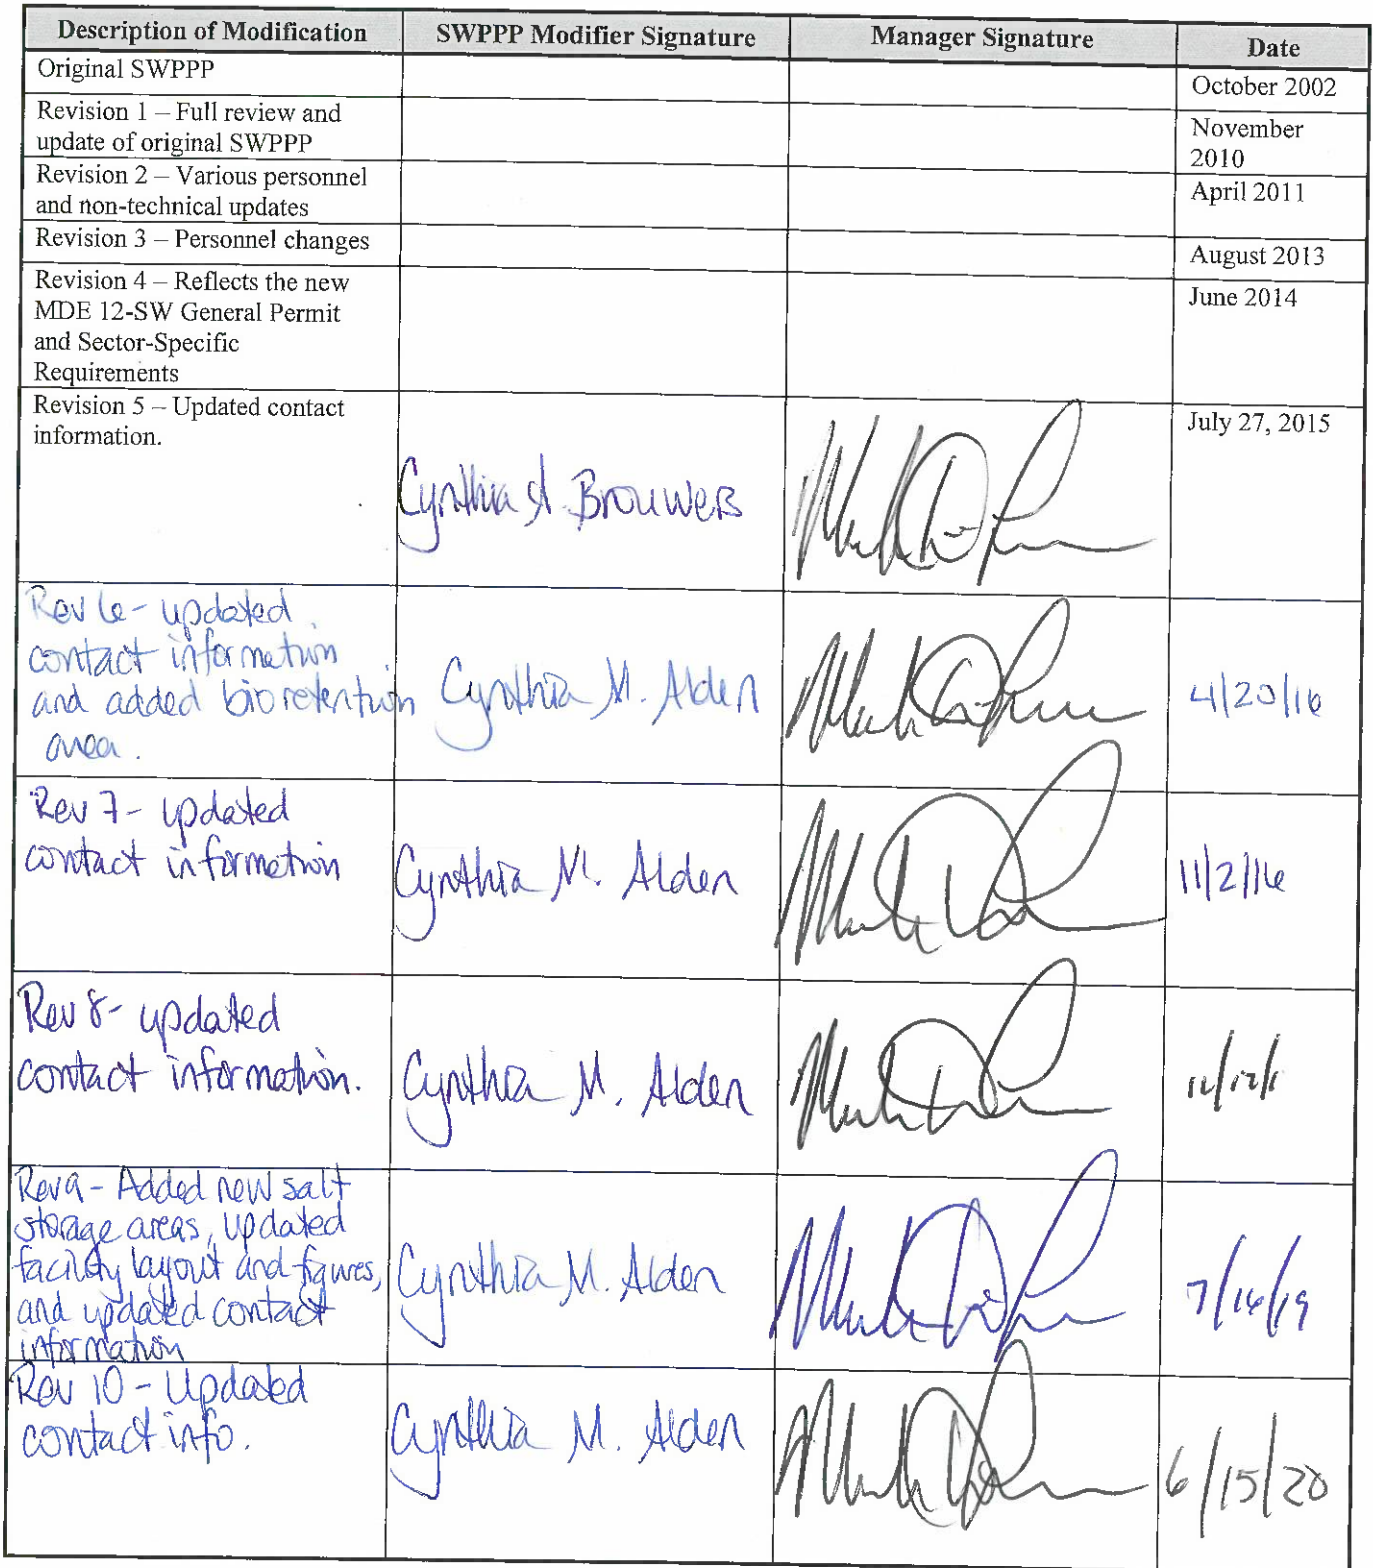 Description of Modification SWPPP Modifier Signature Manager Signature Date
Original SWPPP
October 2002
Revision 1 – Full review and
update of original SWPPP
November
2010
Revision 2 – Various personnel
and non-technical updates
April 2011
Revision 3 – Personnel changes
August 2013
Revision 4 – Reflects the new
MDE 12-SW General Permit
and Sector-Specific
Requirements
June 2014
Revision 5 – Updated contact
information.
Cynthia A. Brouwers
July 27, 2015
Rev 6 - updated
contact information
and added bioretention
area.
Cynthia M. Alden
4/20/16
Rev 7 - updated
contact information
Cynthia M. Alden
11/2/16
Rev 8 - updated
contact information.
Cynthia M. Alden
Rev 9 - Added new salt
storage areas, updated
facility layout and figures,
and updated contact
information
Cynthia M. Alden
7/16/19
Rev 10 - Updated
contact info.
Cynthia M. Alden
6/15/20